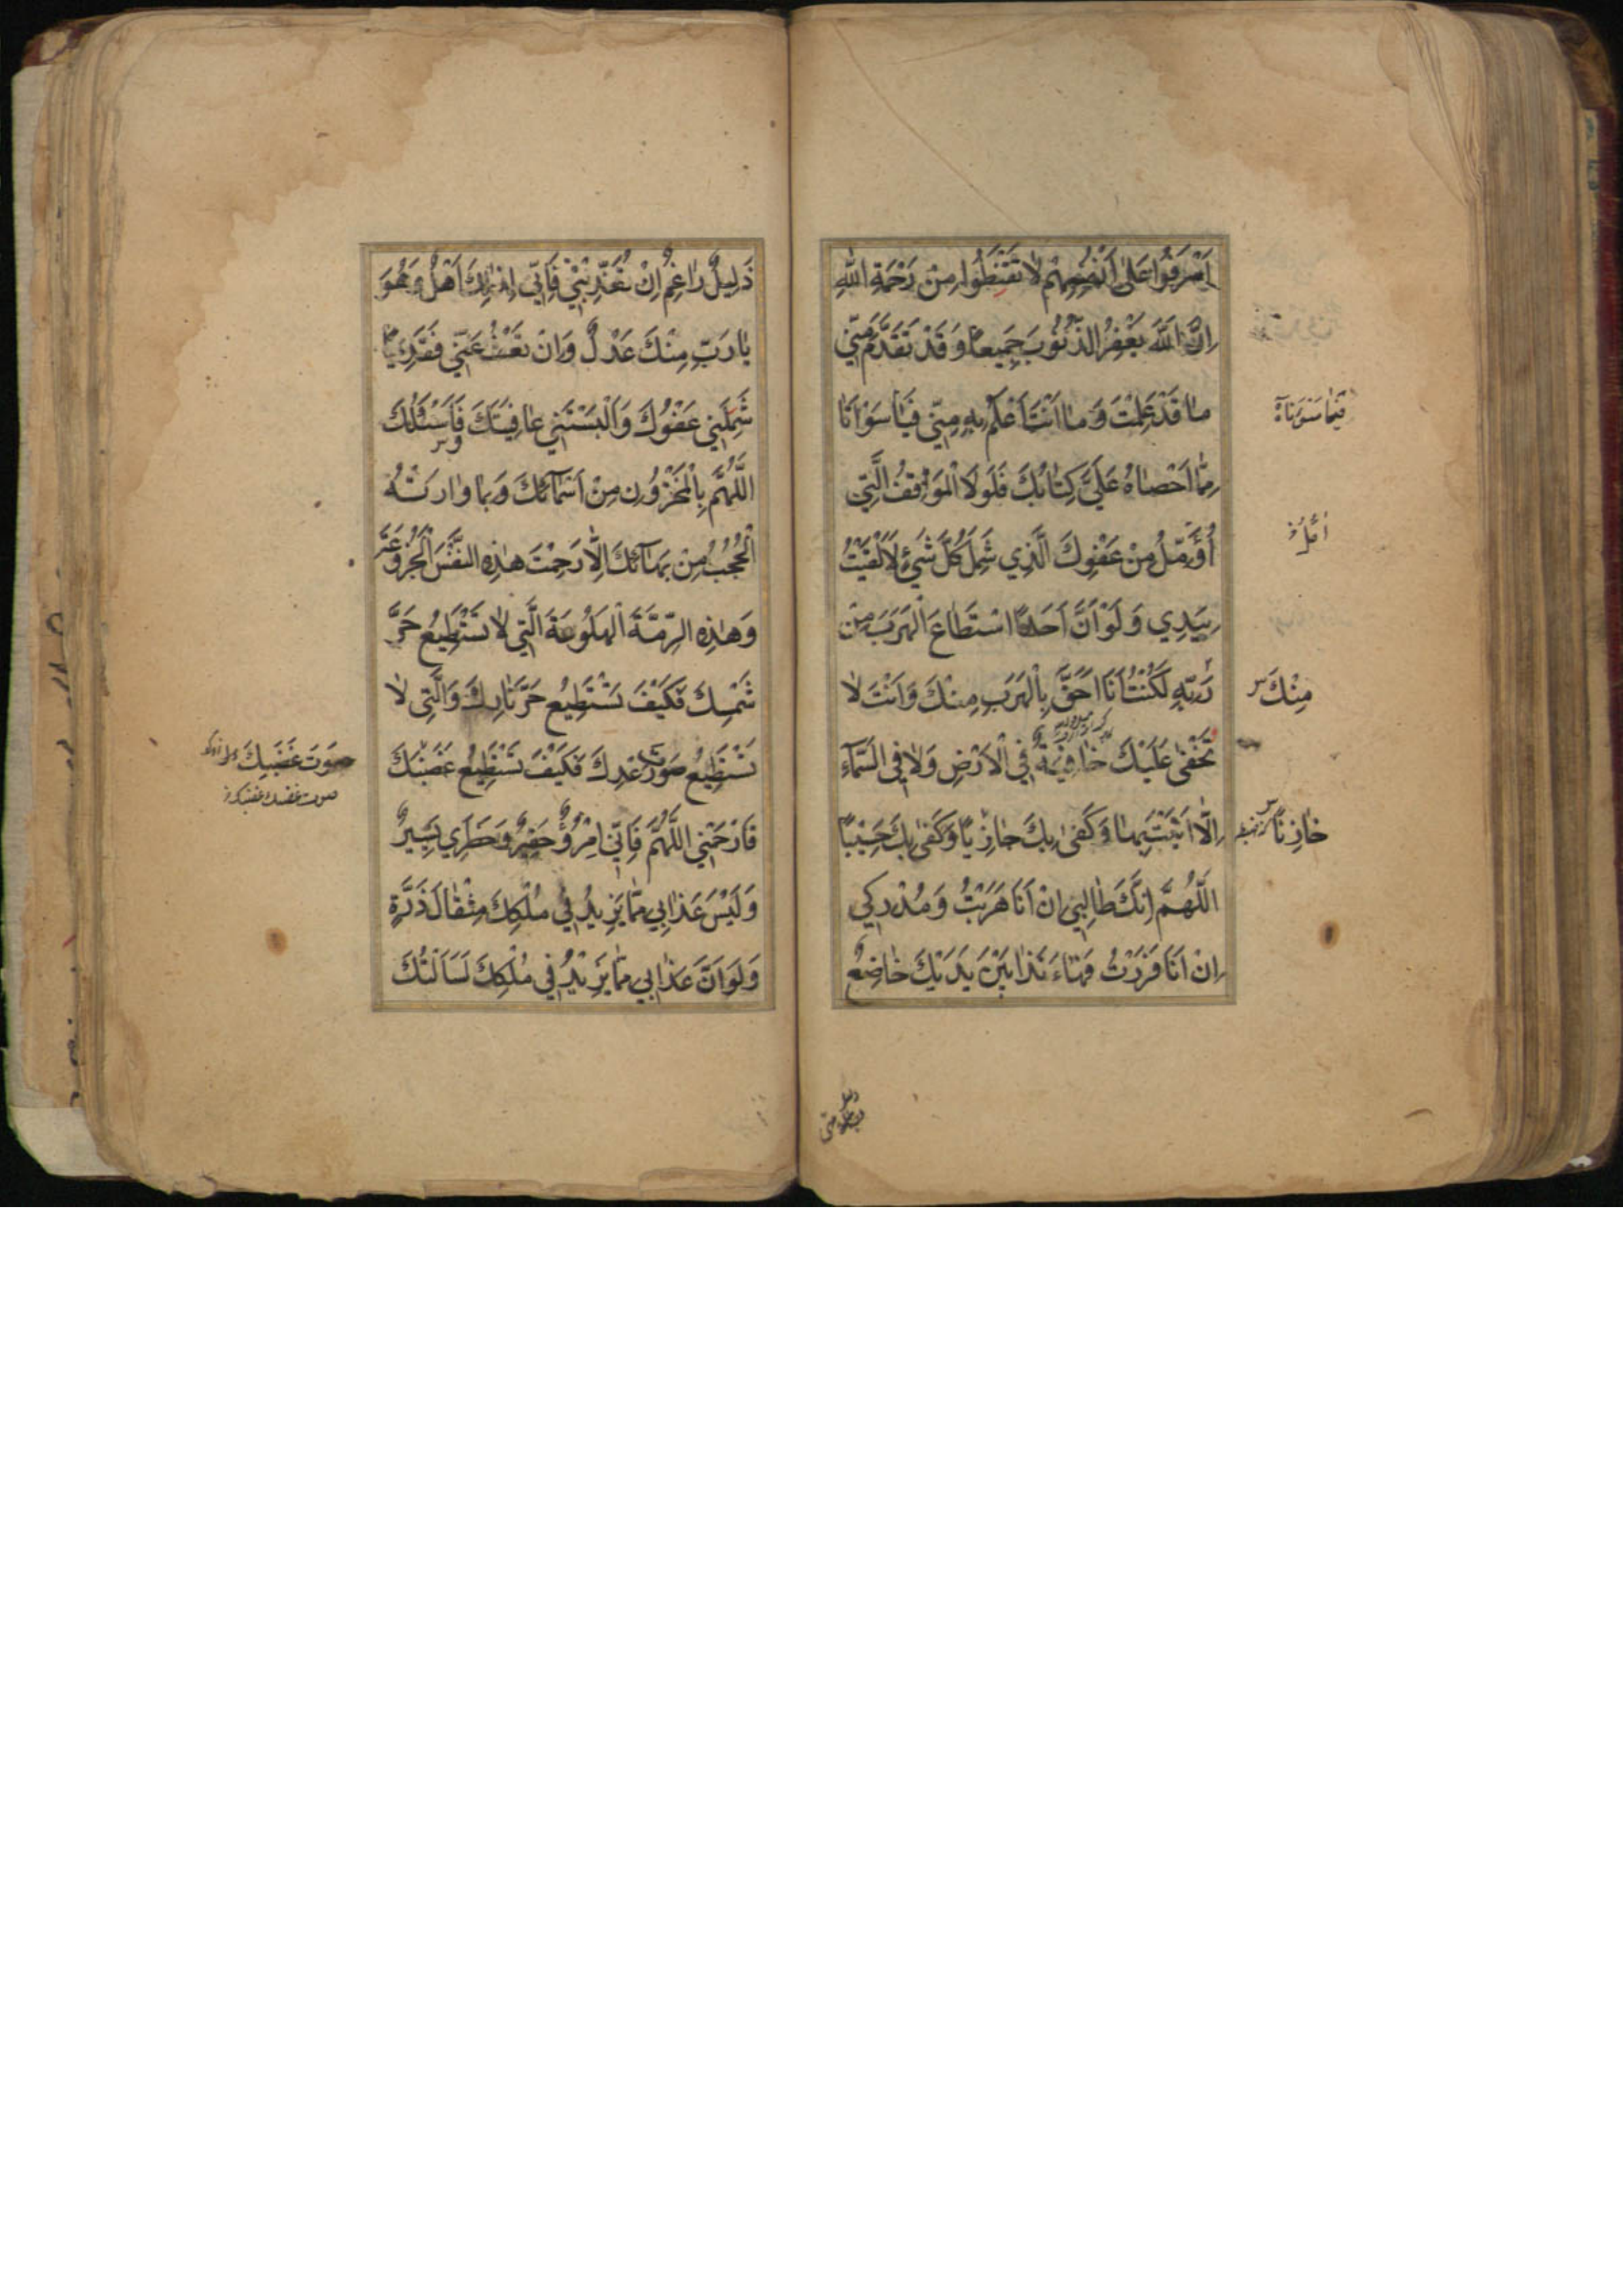 اَسْرَفُوا عَلىٰ اَنْفُسِهِمْ لاٰ تَقْنَطُوا مِنْ رَحْمَةِ اللّٰهِ
اِنَّ اللّٰهَ يَغْفِرُ الذُّنُوبَ جَمِيعاً وَقَدْ تَقَدَّمَ مِنّي
مٰا قَدْ عَلِمْتَ وَمٰا اَنْتَ اَعْلَمُ بِهِ مِنّي فَيٰا سَوْاَتٰا
مِمّٰا اَحْصٰاهُ عَلَيَّ كِتٰابُكَ فَلَوْلاَ الْمَوٰاقِفُ الَّتِي
اُؤَمِّلُ مِنْ عَفْوِكَ الَّذِي شَمِلَ كُلَّ شَيْءٍ لَاَلْقَيْتُ
بِيَدِي وَلَوْ اَنَّ اَحَداً اسْتَطٰاعَ الْهَرَبَ مِنْ
رَبِّهِ لَكُنْتُ اَنَا اَحَقَّ بِالْهَرَبِ مِنْكَ وَاَنْتَ لاٰ
تَخْفىٰ عَلَيْكَ خٰافِيَةٌ فِي الْاَرْضِ وَلاٰ فِي السَّمٰآءِ
اِلّٰا اَتَيْتَ بِهٰا وَكَفىٰ بِكَ جٰازِياً وَكَفىٰ بِكَ حَسِيْباً
اَللّٰهُمَّ اِنَّكَ طٰالِبِي اِنْ اَنَا هَرَبْتُ وَمُدْرِكِي
اِنْ اَنَا فَرَرْتُ فَهٰاءَنَذٰا بَيْنَ يَدَيْكَ خٰاضِعٌ
مِنْكَ
خٰازِناً
ذَلِيلٌ رٰاغِمٌ اِنْ تُعَذِّبْنِيْ فَاِنِّي لِذٰلِكَ اَهْلٌ وَهُوَ
يٰا رَبِّ مِنْكَ عَدْلٌ وَاِنْ تَعْفُ عَنِّي فَقَدِيماً
شَمِلَنِي عَفْوُكَ وَاَلْبَسْتَنِي عٰافِيَتَكَ فَاَسْئَلُكَ
اَللّٰهُمَّ بِالْمَخْزُونِ مِنْ اَسْمٰآئِكَ وَبِمٰا وٰارَتْهُ
الْحُجُبُ مِنْ بَهٰآئِكَ اِلّٰا رَحِمْتَ هٰذِهِ النَّفْسَ الْجَزُوعَةَ
وَهٰذِهِ الرِّمَّةَ الْهَلُوعَةَ الَّتِي لاٰ تَسْتَطِيعُ حَرَّ
شَمْسِكَ فَكَيْفَ تَسْتَطِيعُ حَرَّ نٰارِكَ وَالَّتِي لاٰ
تَسْتَطِيعُ صَوْتَ رَعْدِكَ فَكَيْفَ تَسْتَطِيعُ غَضَبَكَ
فَارْحَمْنِي اللّٰهُمَّ فَاِنِّي امْرُؤٌ حَقِيرٌ وَخَطَرِي يَسِيرٌ
وَلَيْسَ عَذٰابِي مِمّٰا يَزِيدُ فِي مُلْكِكَ مِثْقٰالَ ذَرَّةٍ
وَلَوْ اَنَّ عَذٰابِي مِمّٰا يَزِيْدُ فِي مُلْكِكَ لَسَاَلْتُكَ
صَوْتَ غَضَبِكَ